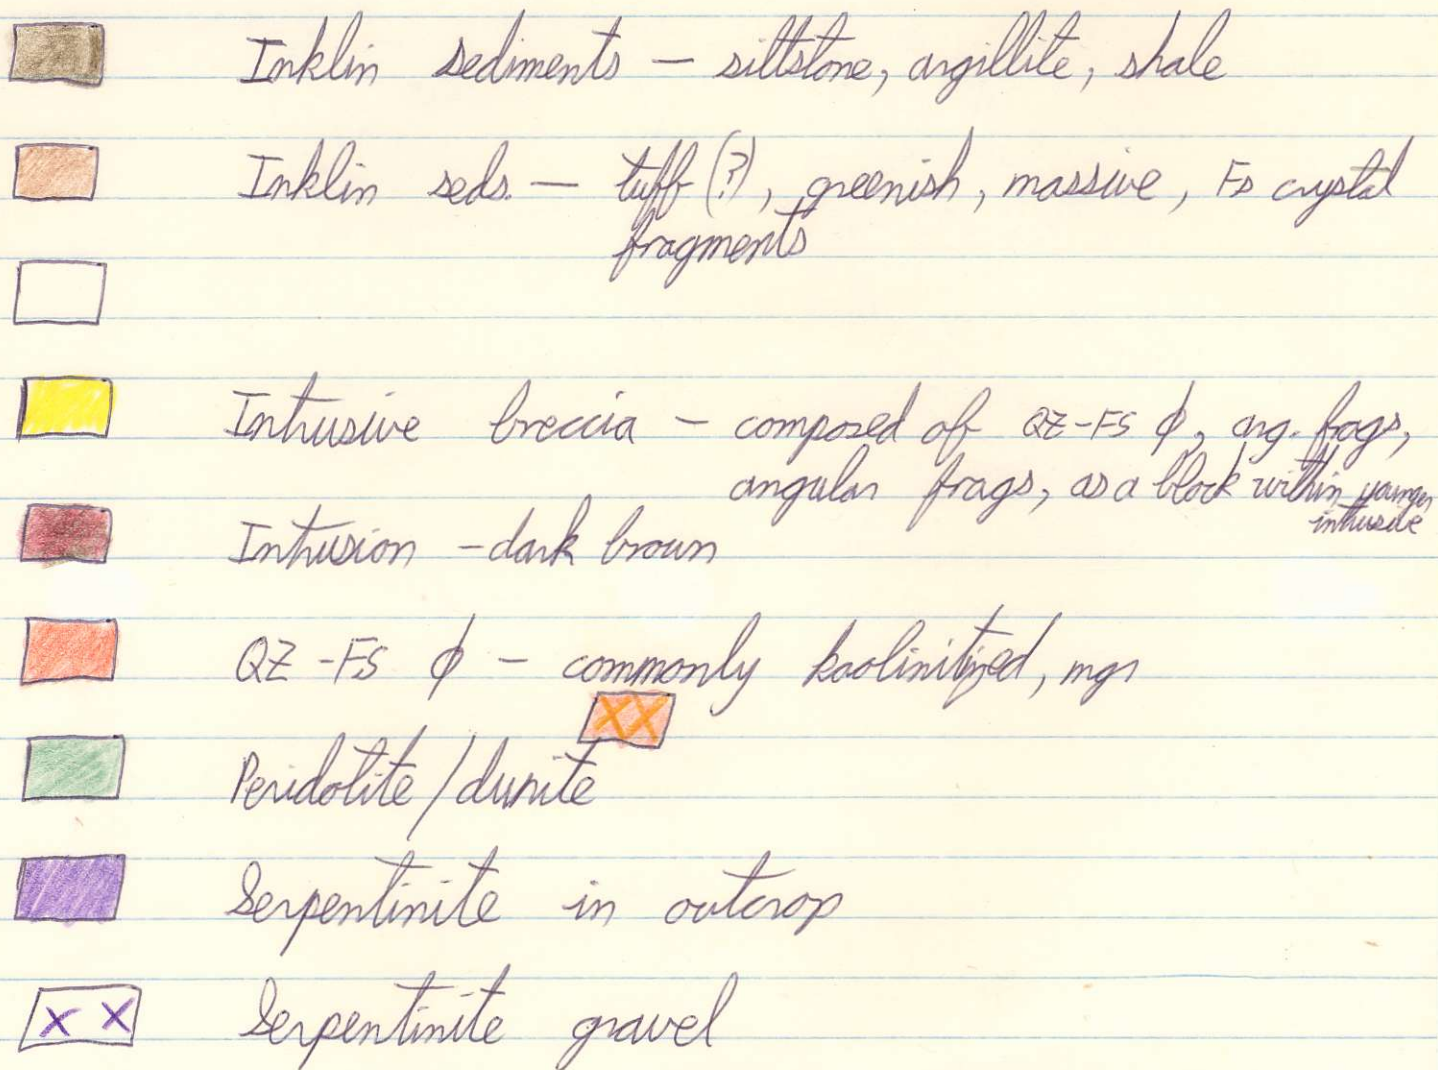 Inklin sediments — siltstone, argillite, shale
Inklin seds. — tuff (?), greenish, massive, Fs crystal
fragments
Intrusive breccia – composed of QZ-FS ϕ, arg. frags,
angular frags, as a block within younger
intrusive
Intrusion - dark brown
QZ-FS ϕ – commonly kaolinitized, mgr
XX
Peridotite/dunite
Serpentinite in outcrop
X X Serpentinite gravel